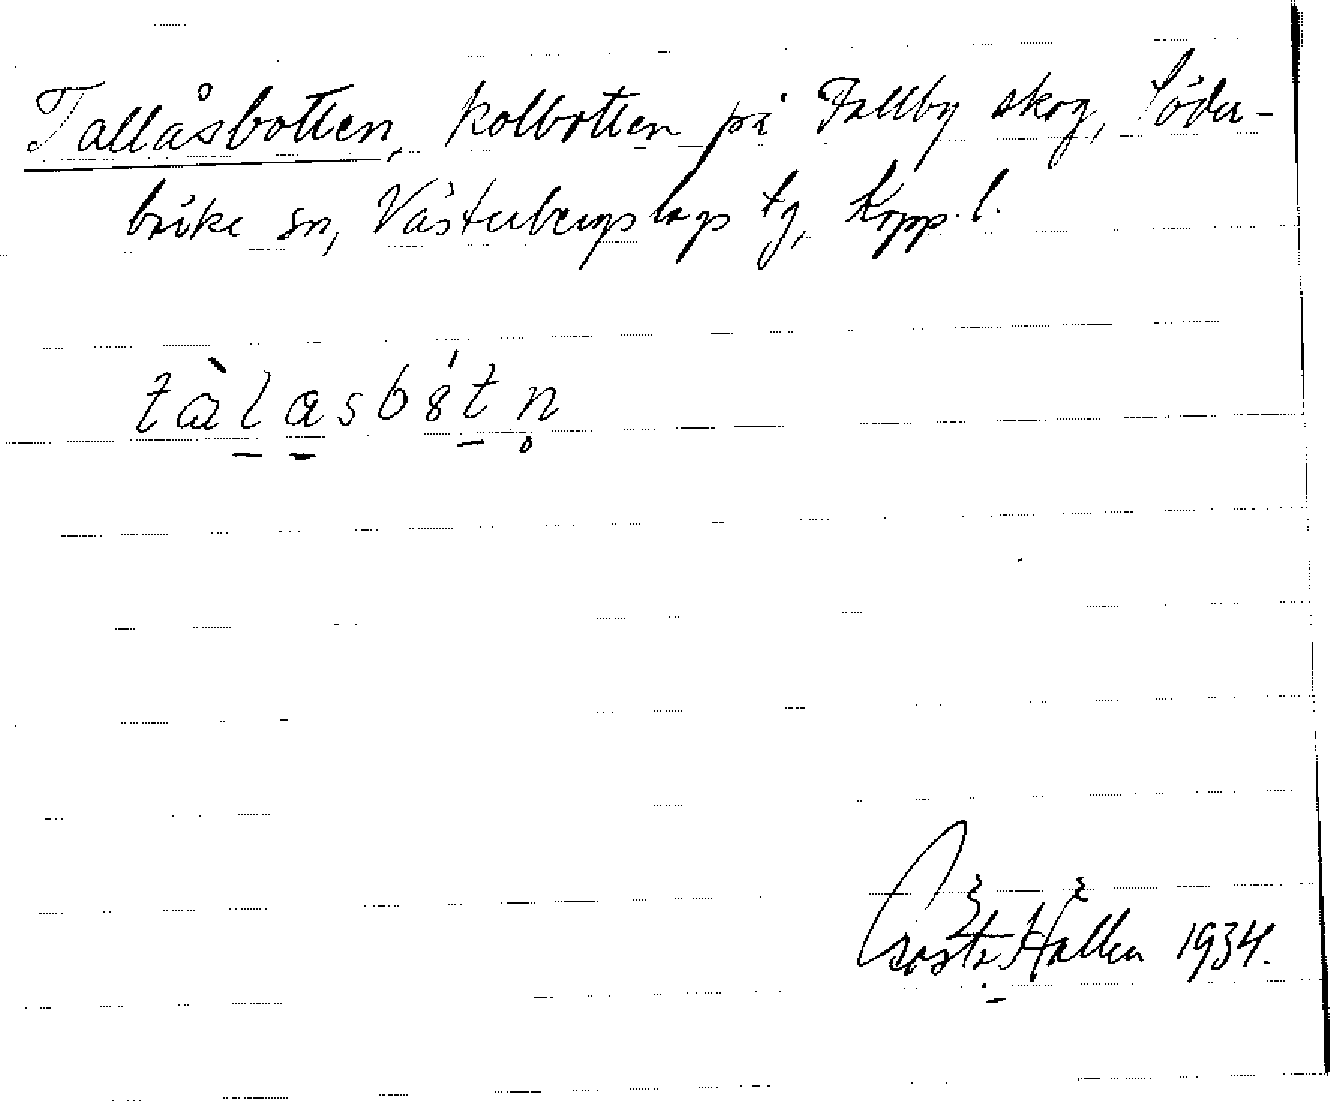 Tallåsbotten, kolbotten på Fallby skog, Söder-
bärke sn, Västerbergslags tg, Kopp. l.
tàlasbótn̥
Gösta Hallén 1934.